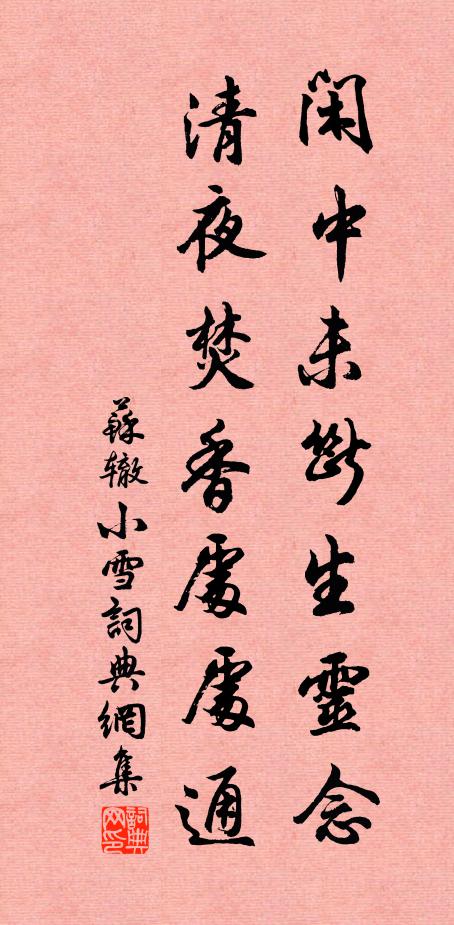 閑中未斷生靈念
清夜焚香處處通
蘇轍小雪詞典網集
詞典网印